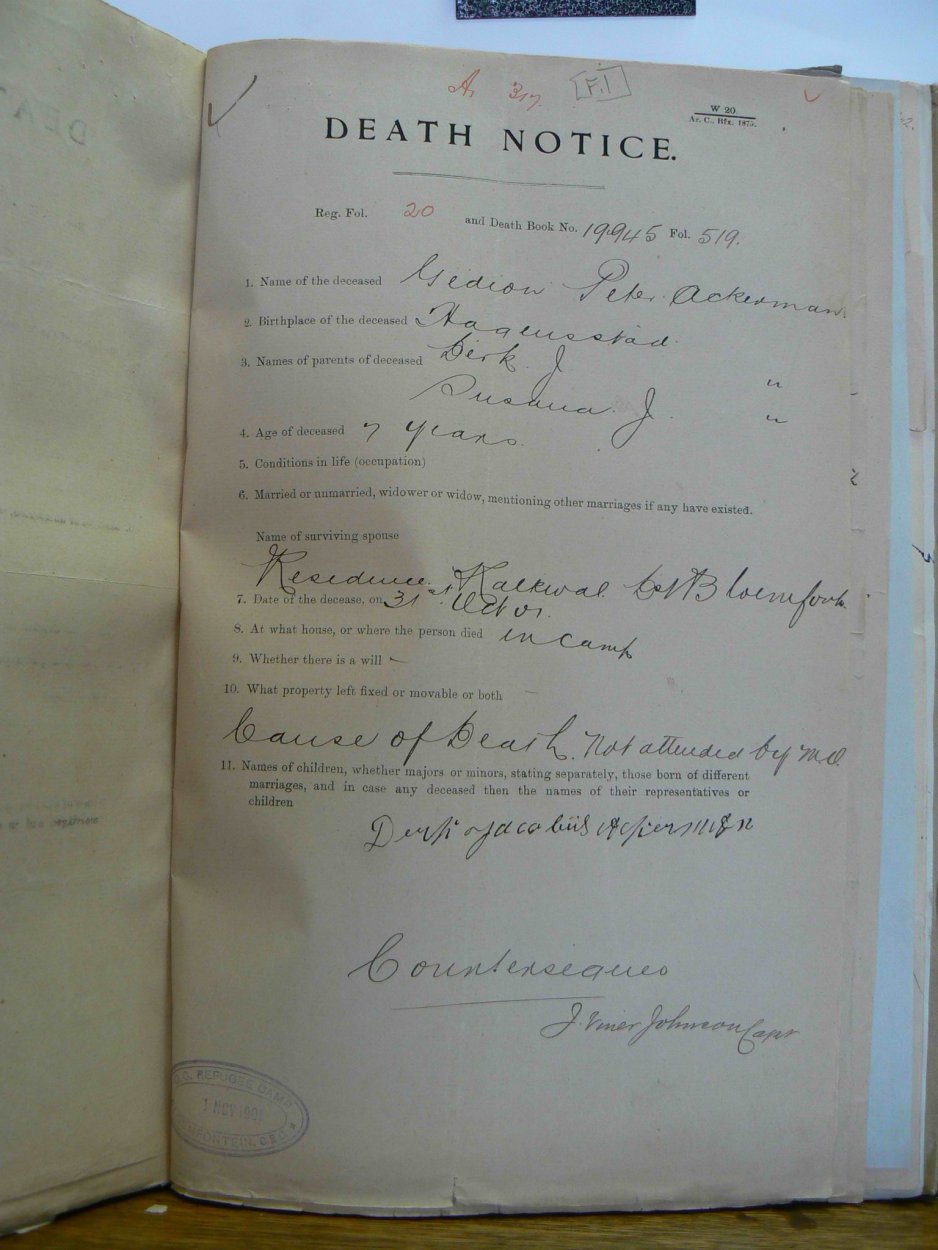 A. 317 F.1
W 20
Ar. C., Bfn. 1875.
DEATH NOTICE.
Reg. Fol. 20 and Death Book No. 19945 Fol. 519.
1. Name of the deceased Gedion Peter Ackerman
2. Birthplace of the deceased Hagensstad
3. Names of parents of deceased Derk J "
Susana J. "
4. Age of deceased 7 years.
5. Conditions in life (occupation)
6. Married or unmarried, widower or widow, mentioning other marriages if any have existed.
Name of surviving spouse
Residence Kalkwal Dst Bloemfontn
7. Date of the decease, on 31st Oct 01.
8. At what house, or where the person died in camp
9. Whether there is a will -
10. What property left fixed or movable or both -
Cause of Death. Not attended by M.O.
11. Names of children, whether majors or minors, stating separately, those born of different
marriages, and in case any deceased then the names of their representatives or
children
Derk Jacobus Ackerman
Counterseques
J. Viner Johnson Capt
REFUGEE CAMP
1 NOV 1901